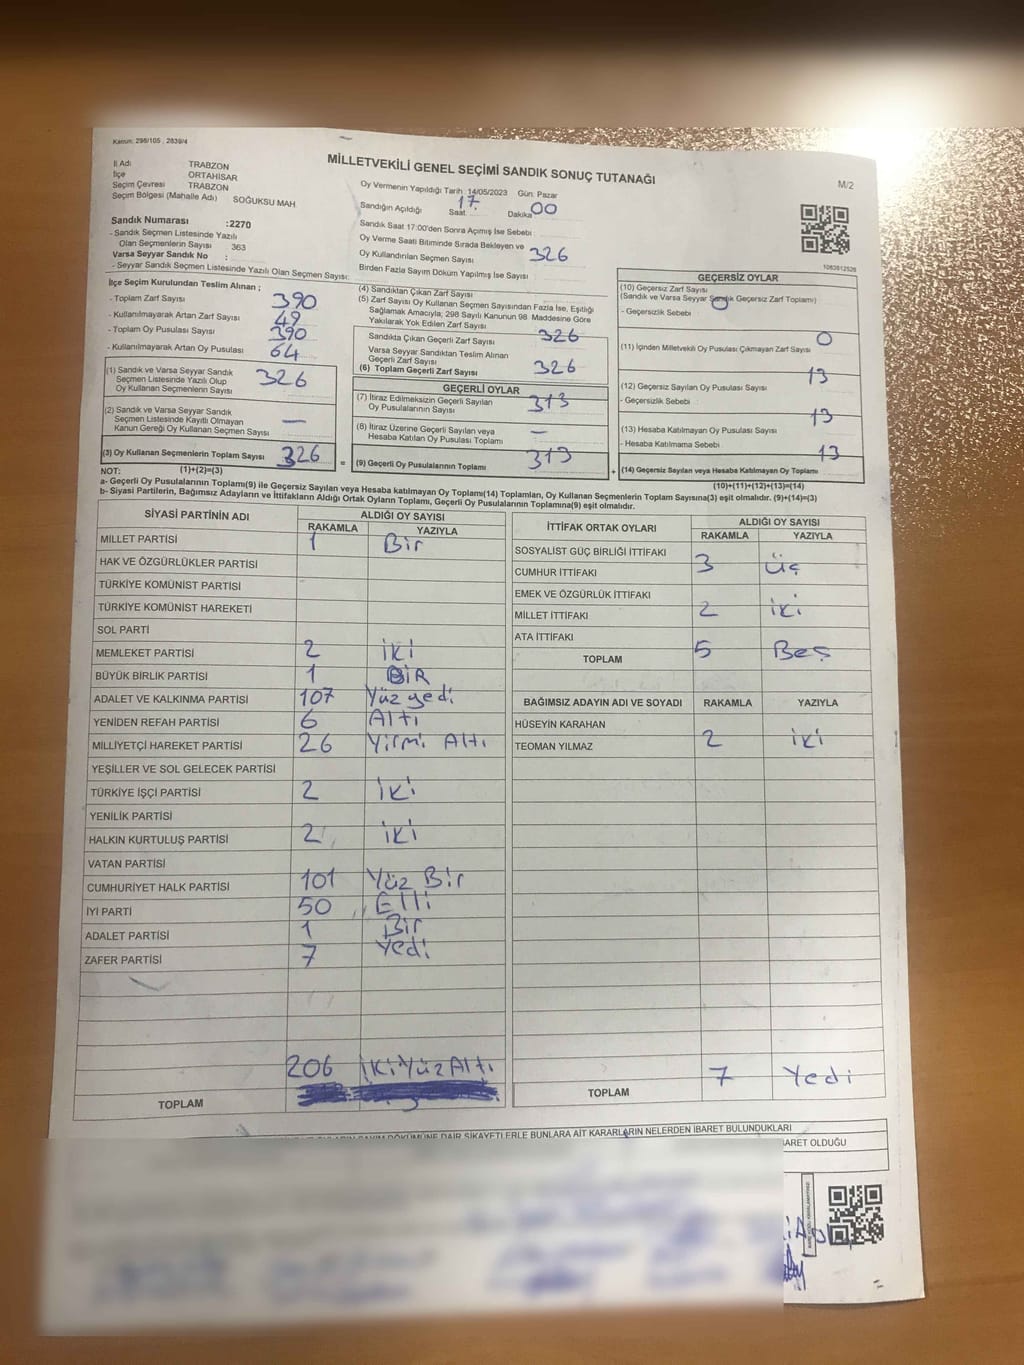 Kanun: 298/105 , 2839/4
MİLLETVEKİLİ GENEL SEÇİMİ SANDIK SONUÇ TUTANAĞI
M/2
İl Adı TRABZON
İlçe ORTAHİSAR
Seçim Çevresi TRABZON
Seçim Bölgesi (Mahalle Adı) SOĞUKSU MAH
Sandık Numarası :2270
- Sandık Seçmen Listesinde Yazılı
Olan Seçmenlerin Sayısı 363
Varsa Seyyar Sandık No :
- Seyyar Sandık Seçmen Listesinde Yazılı Olan Seçmen Sayısı:
Oy Vermenin Yapıldığı Tarih :14/05/2023 Gün: Pazar
Sandığın Açıldığı Saat 17. Dakika 00
Sandık Saat 17:00'den Sonra Açımış İse Sebebi
Oy Verme Saati Bitiminde Sırada Bekleyen ve
Oy Kullandırılan Seçmen Sayısı 326
Birden Fazla Sayım Döküm Yapılmış İse Sayısı
1083812526
İlçe Seçim Kurulundan Teslim Alınan ;
- Toplam Zarf Sayısı 390
- Kullanılmayarak Artan Zarf Sayısı 49
- Toplam Oy Pusulası Sayısı 390
- Kullanılmayarak Artan Oy Pusulası 64
(1) Sandık ve Varsa Seyyar Sandık
Seçmen Listesinde Yazılı Olup
Oy Kullanan Seçmenlerin Sayısı 326
(2) Sandık ve Varsa Seyyar Sandık
Seçmen Listesinde Kayıtlı Olmayan
Kanun Gereği Oy Kullanan Seçmen Sayısı —
(3) Oy Kullanan Seçmenlerin Toplam Sayısı 326
(4) Sandıktan Çıkan Zarf Sayısı
(5) Zarf Sayısı Oy Kullanan Seçmen Sayısından Fazla İse, Eşitliği
Sağlamak Amacıyla; 298 Sayılı Kanunun 98. Maddesine Göre
Yakılarak Yok Edilen Zarf Sayısı
Sandıkta Çıkan Geçerli Zarf Sayısı 326
Varsa Seyyar Sandıktan Teslim Alınan
Geçerli Zarf Sayısı
(6) Toplam Geçerli Zarf Sayısı 326
GEÇERLİ OYLAR
(7) İtiraz Edilmeksizin Geçerli Sayılan
Oy Pusulalarının Sayısı 313
(8) İtiraz Üzerine Geçerli Sayılan veya
Hesaba Katılan Oy Pusulası Toplamı —
= (9) Geçerli Oy Pusulalarının Toplamı 313
GEÇERSİZ OYLAR
(10) Geçersiz Zarf Sayısı
(Sandık ve Varsa Seyyar Sandık Geçersiz Zarf Toplamı) 0
- Geçersizlik Sebebi
(11) İçinden Milletvekili Oy Pusulası Çıkmayan Zarf Sayısı 0
(12) Geçersiz Sayılan Oy Pusulası Sayısı 13
- Geçersizlik Sebebi
(13) Hesaba Katılmayan Oy Pusulası Sayısı 13
- Hesaba Katılmama Sebebi
+ (14) Geçersiz Sayılan veya Hesaba Katılmayan Oy Toplamı 13
NOT: (1)+(2)=(3)
(10)+(11)+(12)+(13)=(14)
a- Geçerli Oy Pusulalarının Toplamı(9) ile Geçersiz Sayılan veya Hesaba katılmayan Oy Toplamı(14) Toplamları, Oy Kullanan Seçmenlerin Toplam Sayısına(3) eşit olmalıdır. (9)+(14)=(3)
b- Siyasi Partilerin, Bağımsız Adayların ve İttifakların Aldığı Ortak Oyların Toplamı, Geçerli Oy Pusulalarının Toplamına(9) eşit olmalıdır.
SİYASİ PARTİNİN ADI ALDIĞI OY SAYISI
RAKAMLA YAZIYLA
MİLLET PARTİSİ 1 Bir
HAK VE ÖZGÜRLÜKLER PARTİSİ
TÜRKİYE KOMÜNİST PARTİSİ
TÜRKİYE KOMÜNİST HAREKETİ
SOL PARTİ
MEMLEKET PARTİSİ 2 iki
BÜYÜK BİRLİK PARTİSİ 1 BİR
ADALET VE KALKINMA PARTİSİ 107 Yüz yedi
YENİDEN REFAH PARTİSİ 6 Altı
MİLLİYETÇİ HAREKET PARTİSİ 26 Yirmi Altı
YEŞİLLER VE SOL GELECEK PARTİSİ
TÜRKİYE İŞÇİ PARTİSİ 2 iki
YENİLİK PARTİSİ
HALKIN KURTULUŞ PARTİSİ 2 iki
VATAN PARTİSİ
CUMHURİYET HALK PARTİSİ 101 Yüz Bir
İYİ PARTİ 50 Elli
ADALET PARTİSİ 1 Bir
ZAFER PARTİSİ 7 Yedi
206 İKi Yüz Altı
TOPLAM
İTTİFAK ORTAK OYLARI ALDIĞI OY SAYISI
RAKAMLA YAZIYLA
SOSYALİST GÜÇ BİRLİĞİ İTTİFAKI
CUMHUR İTTİFAKI 3 Üç
EMEK VE ÖZGÜRLÜK İTTİFAKI
MİLLET İTTİFAKI 2 iki
ATA İTTİFAKI
TOPLAM 5 Beş
BAĞIMSIZ ADAYIN ADI VE SOYADI RAKAMLA YAZIYLA
HÜSEYİN KARAHAN
TEOMAN YILMAZ 2 iki
7 Yedi
TOPLAM
DÖKÜMÜNE DAİR ŞİKAYETLERLE BUNLARA AİT KARARLARIN NELERDEN İBARET BULUNDUKLARI
OLDUĞU